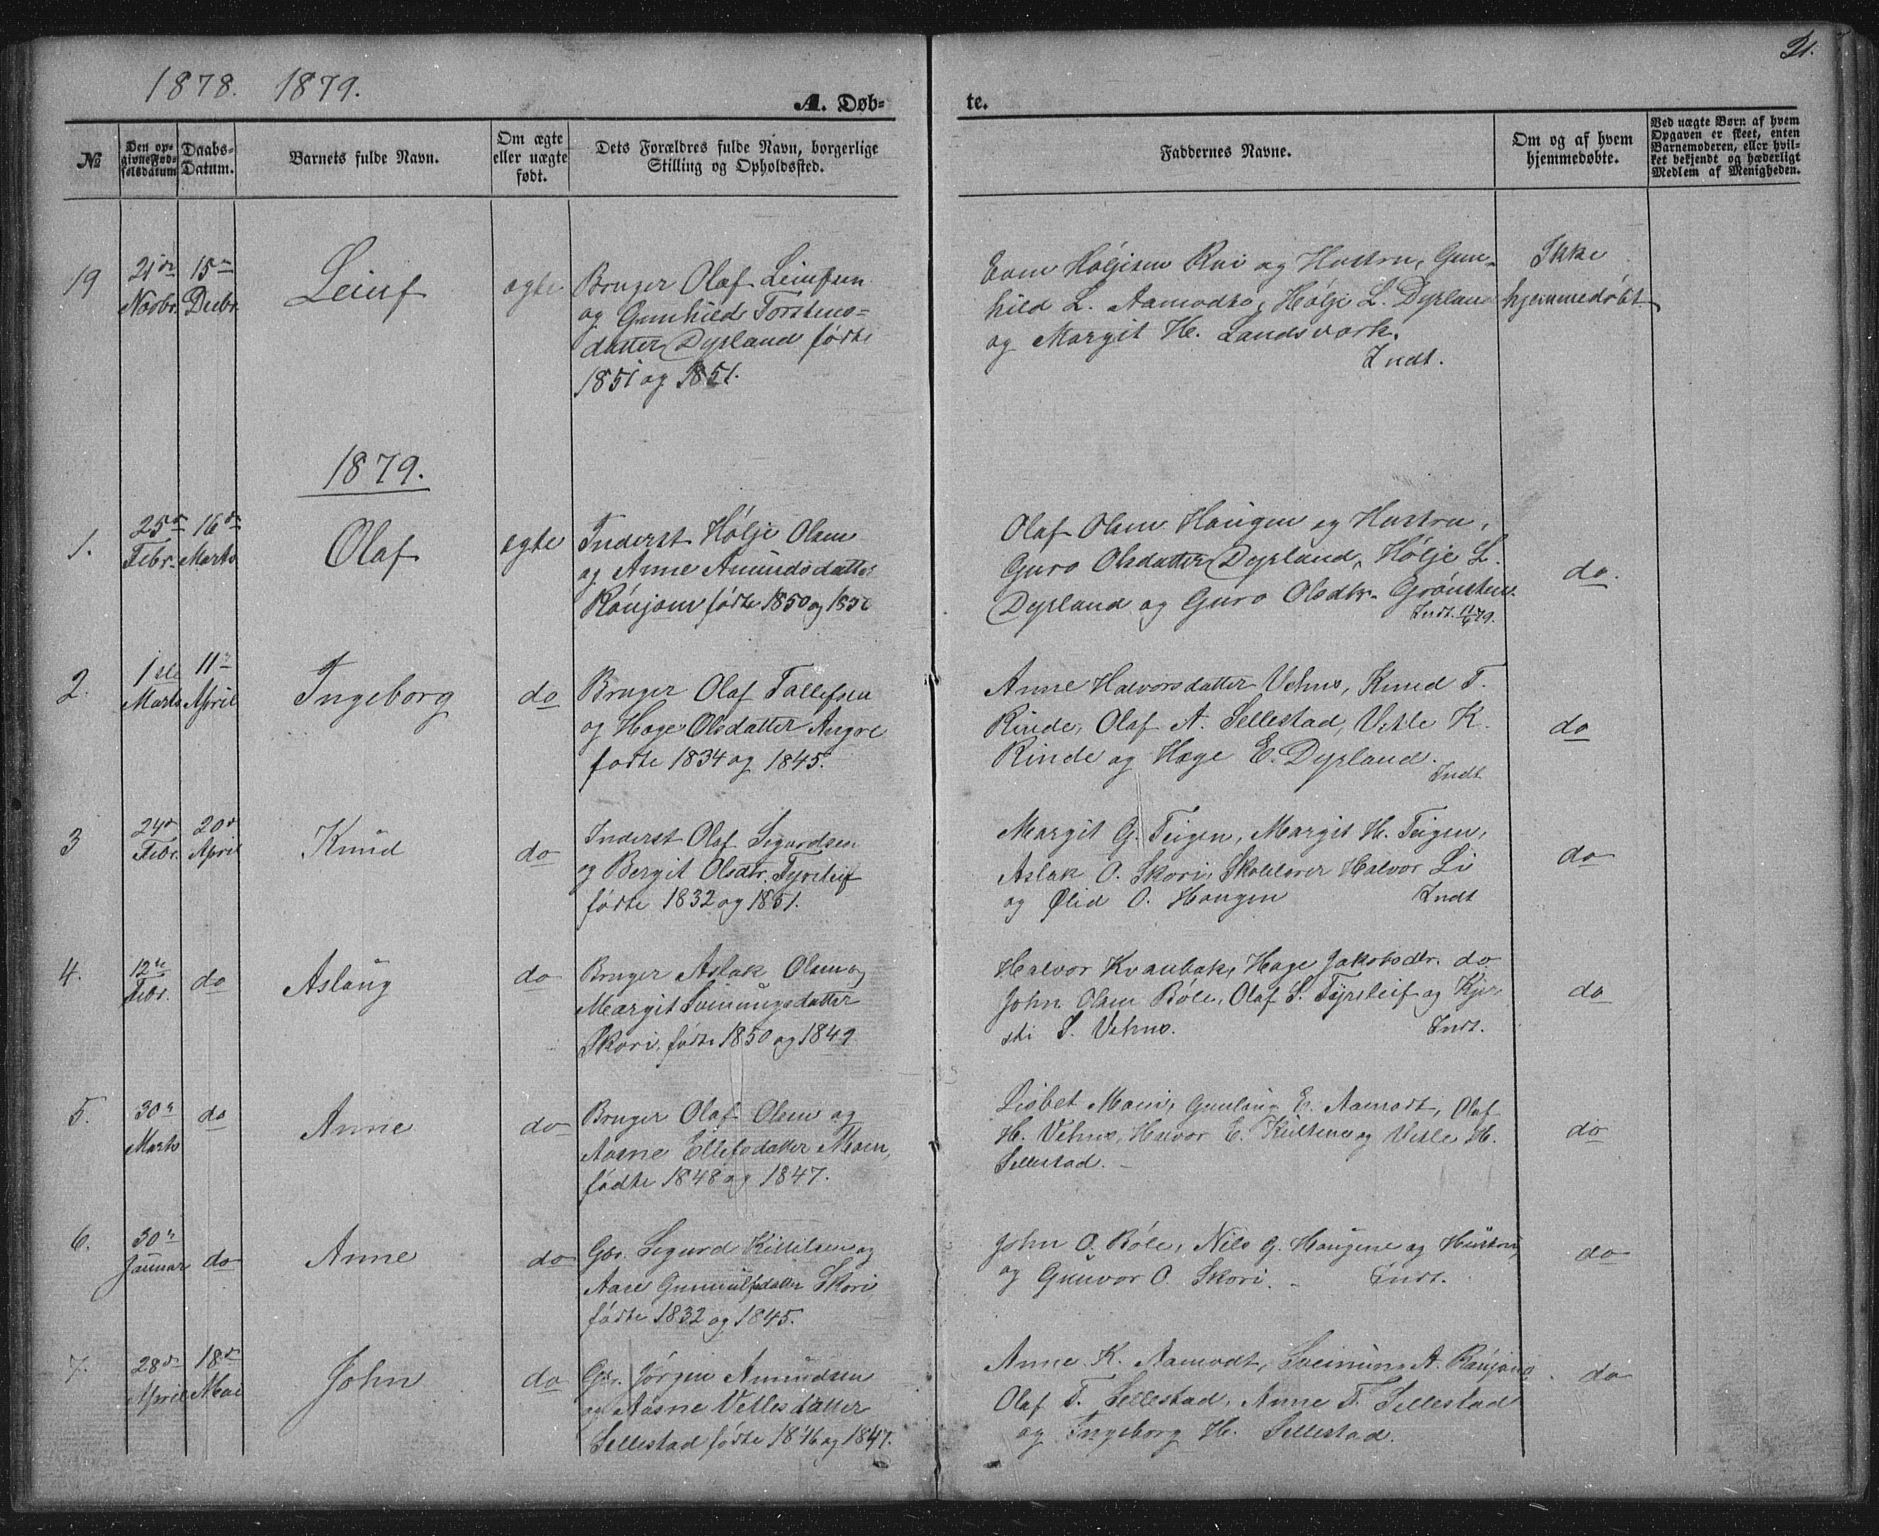 21.
1878. 1879.
A. Døb-
te.
No
Den op-
givne Fød-
selsdatum
Daabs-
Datum.
Barnets fulde Navn.
Om ægte
eller uægte
født.
Dets Forældres fulde Navn, borgerlige
Stilling og Opholdssted.
Faddernes Navne.
Om og af hvem
hjemmedøbte.
Ved uægte Børn af hvem
Opgaven er skeet, enten
Barnemoderen, eller hvil-
ket bekjendt og hæderligt
Medlem af Menigheden.
19
21de
Novbr.
15de
Decbr.
Leiuf
ægte
Bruger Olaf Leiufsen
og Gunhild Torstens-
datter Dyrland fødte
1851 og 1851.
Even Høljesen Rui og Hustru, Gun-
hild L. Aamodt, Hølje L. Dyrland
og Margit H. Landsværk.
Indt.
Ikke
hjemmedøbt
1879.
1.
25de
Febr.
16de
Marts
Olaf
ægte
Inderst Hølje Olsen
og Anne Amundsdatter
Rønjom fødte 1850 og
Olaf Olsen Haugen og Hustru,
Guro Olsdatter Dyrland, Hølje L.
Dyrland og Guro Olsdtr. Grønsten
Indt.
do.
2.
1ste
Marts
11te
April
Ingeborg
do
Bruger Olaf Tallefsen
og Hæge Olsdatter
fødte 1834 og 1845.
Anne Halvorsdatter Vehus, Knud T.
Rinde, Olaf A. Sellestad, Vetle K.
Rinde og Hæge E. Dyrland.
Indt
do
3
24de
Febr.
20de
April
Knud
do
Inderst Olaf Sigurdsen
og Bergit Olsdtr. Tyrsleif
fødte 1832 og 1851.
Margit G. Teigen, Margit H. Teigen,
Aslak O. Skori, Skolelærer Halvor Li
og Ølid O. Haugen
Indt
do
4.
12te
Febr.
do
Aslaug
do
Bruger Aslak Olsen og
Margit Sveinungsdatter
Skori, fødte 1850 og 1849
Halvor Kvanbæk, Hæge Jakobsdtr. do
John Olsen Bøle, Olaf S. Tyrsleif og Kjer-
sti S. Vehus.
Indt.
do
5.
30te
Marts
do
Anne
do
Bruger Olaf Olsen og
Aasne Ellefsdatter Moen,
fødte 1848 og 1847.
Lisbet Moen, Gunlaug E. Aamodt, Olaf
H. Vehus, Halvor E. og Vetle H.
Sellestad.
do
6.
30te
Januar
do
Anne
do
Gbr. Sigurd Kittilsen og
Aase Gunnulfsdatter Skori,
fødte 1832 og 1845.
John O. Bøle, Nils G. Haugene og Hustru,
og Gunvor O. Skori.
Indt.
do
7.
28de
April
18de
Mai
John
do
Gbr. Jørgen Amundsen
og Aasne Vetlesdatter
Sellestad fødte 1846 og 1847.
Anne K. Aamodt, Sveinung A. Rønjom
Olaf T. Sellestad, Anne T. Sellestad
og Ingeborg H. Sellestad.
do